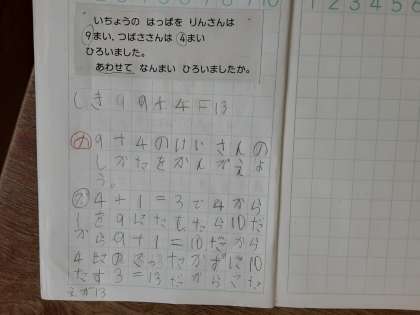 1 2 3 4 5 6
いちょうの はっぱを りんさんは
9まい、つばささんは 4まい
ひろいました。
あわせて なんまい ひろいましたか。
しき 9 9+4=13
9+4のけいさんの
しかたをかんがえよ
う。
4+1=3で4から
1を9にたしたら10だ
から9+1=10だから
4にのこったかずに10
たす3=13だからこた
えが13